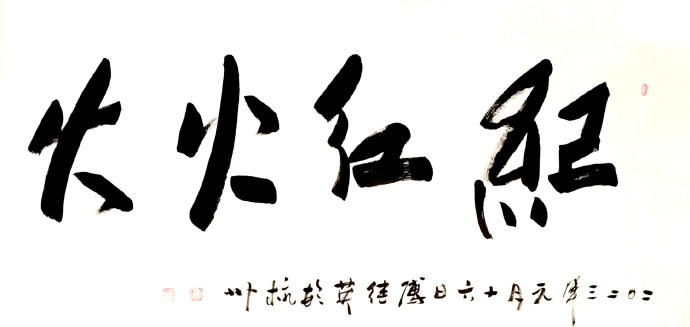 紅红火火
二〇二三年元月十六日英於杭州